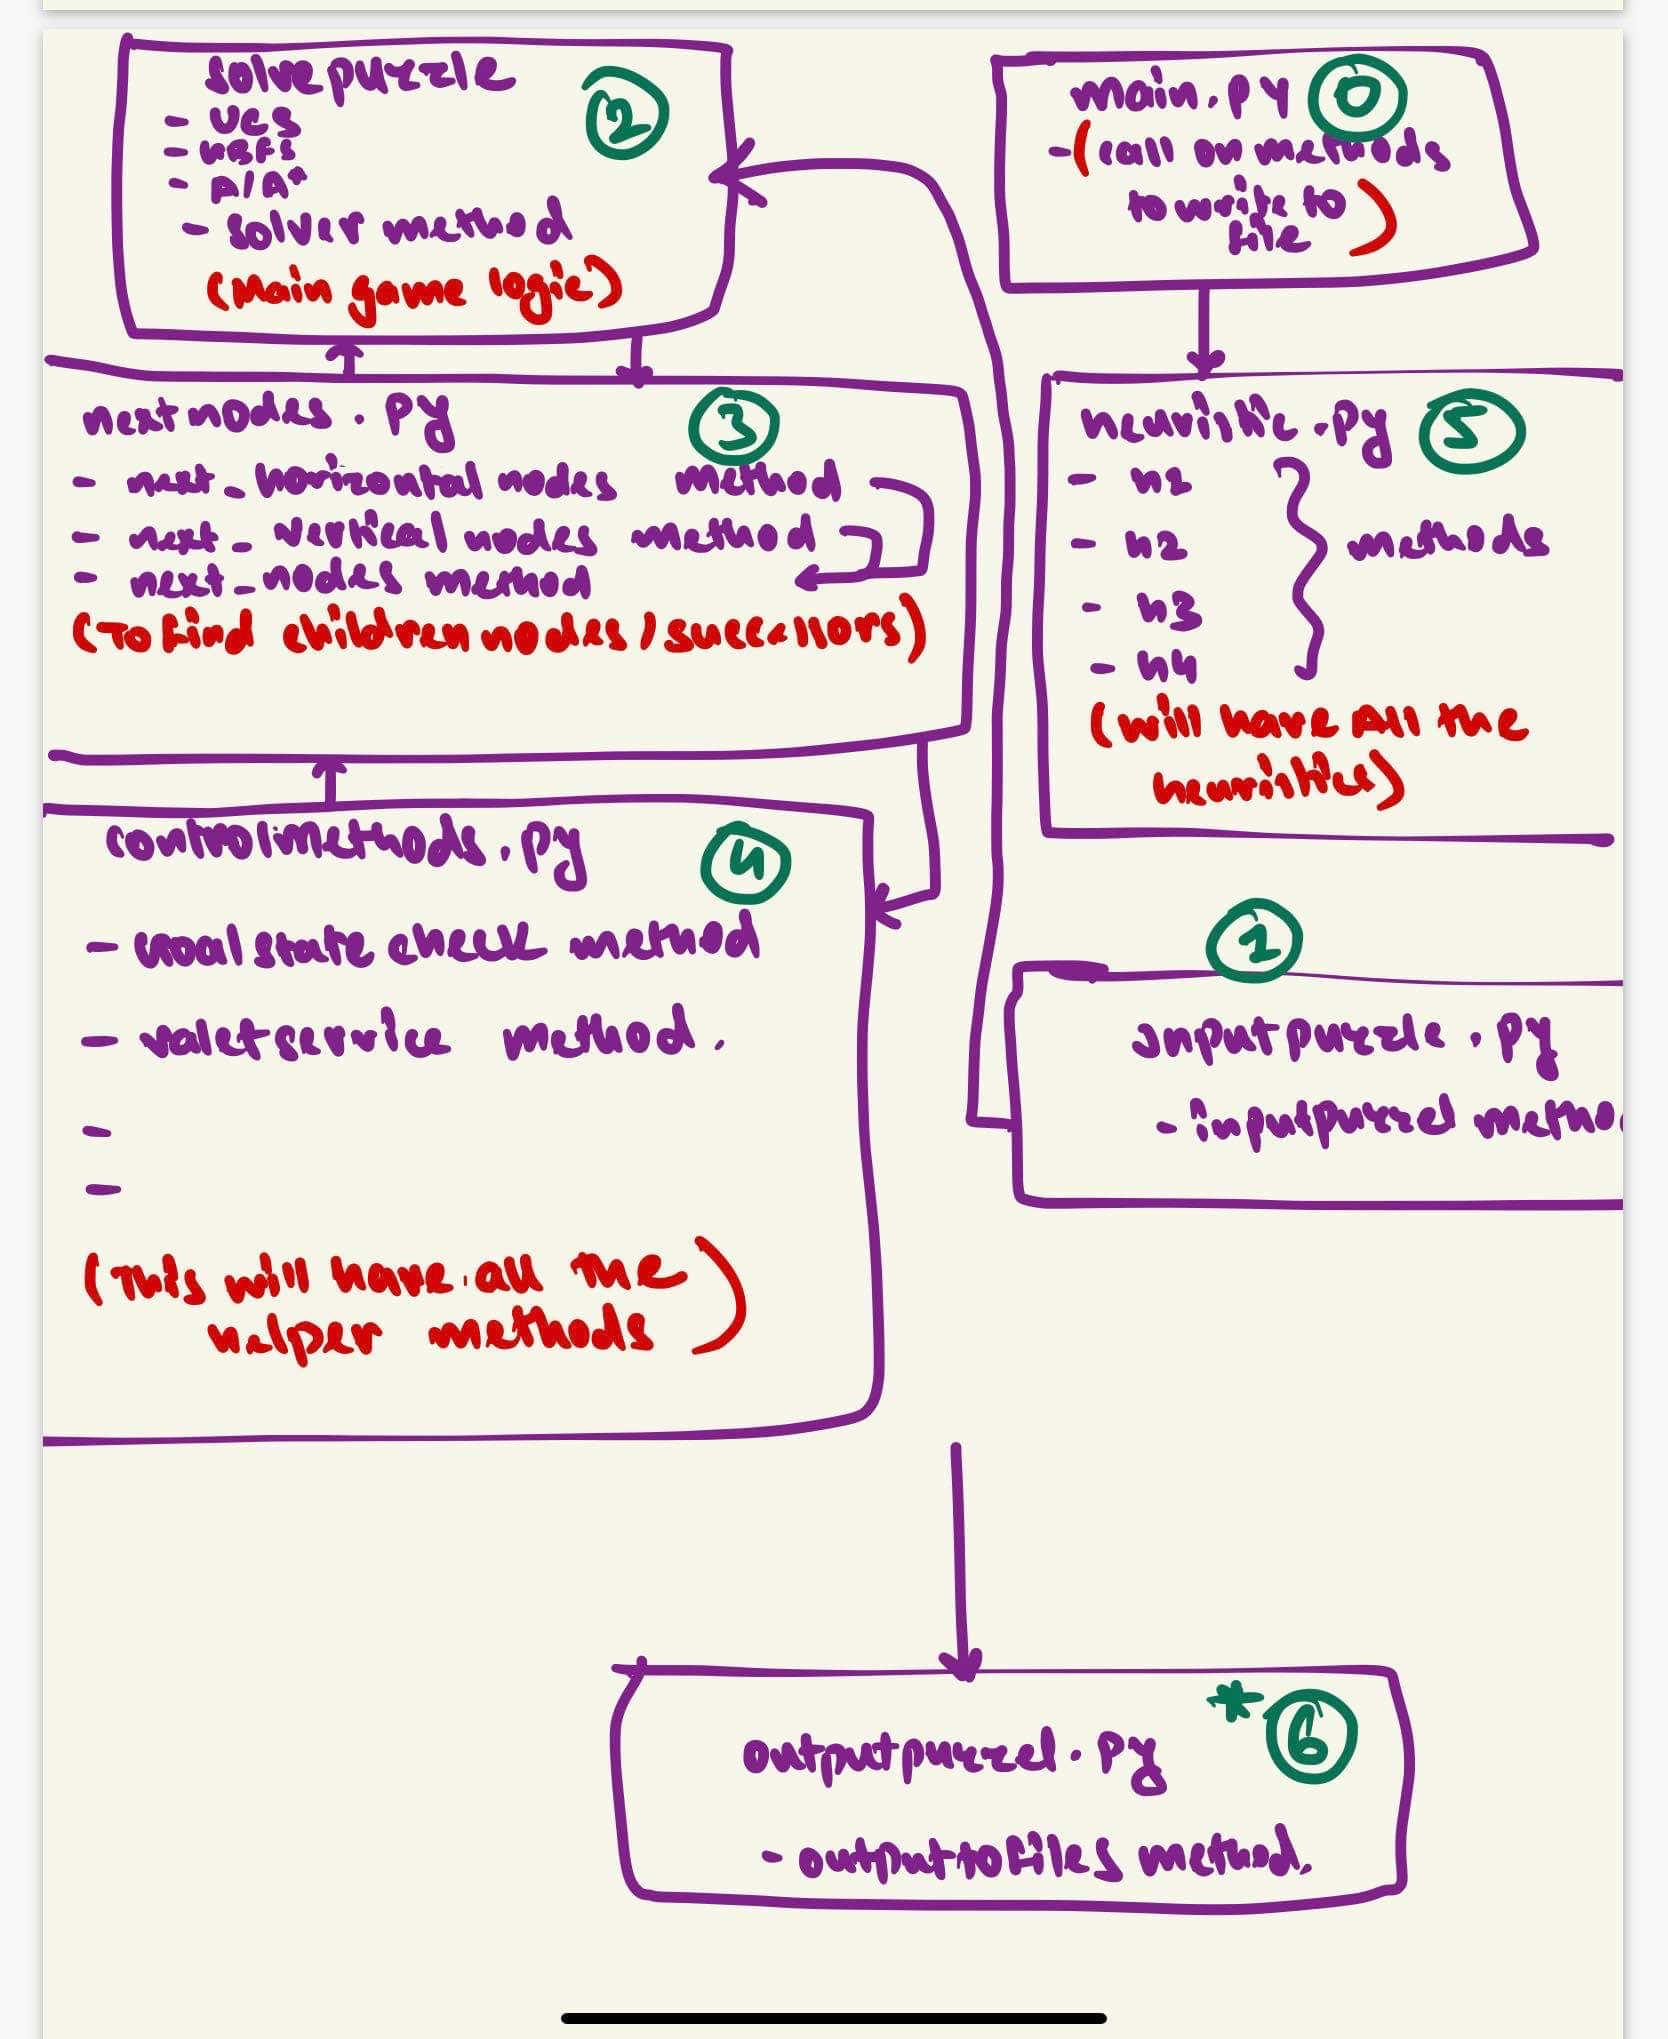 solvepuzzle
2
- UCS
- GBFS
- A/A*
- solver method
(Main game logic)
main.py 0
- (call on methods
to write to
file)
nextnodes.py 3
- next_horizontal nodes method
- next_vertical nodes method
- next_nodes method
(To find children nodes/successors)
heuristic.py 5
- h1
- h2
- h3
- h4
methods
(will have All the
heuristics)
controlmethods.py 4
- Goal state check method
- valet service method.
-
-
(This will have all the
helper methods)
1
inputpuzzle.py
- inputpuzzel metho
outputpuzzel.py
* 6
- outputtofiles method.